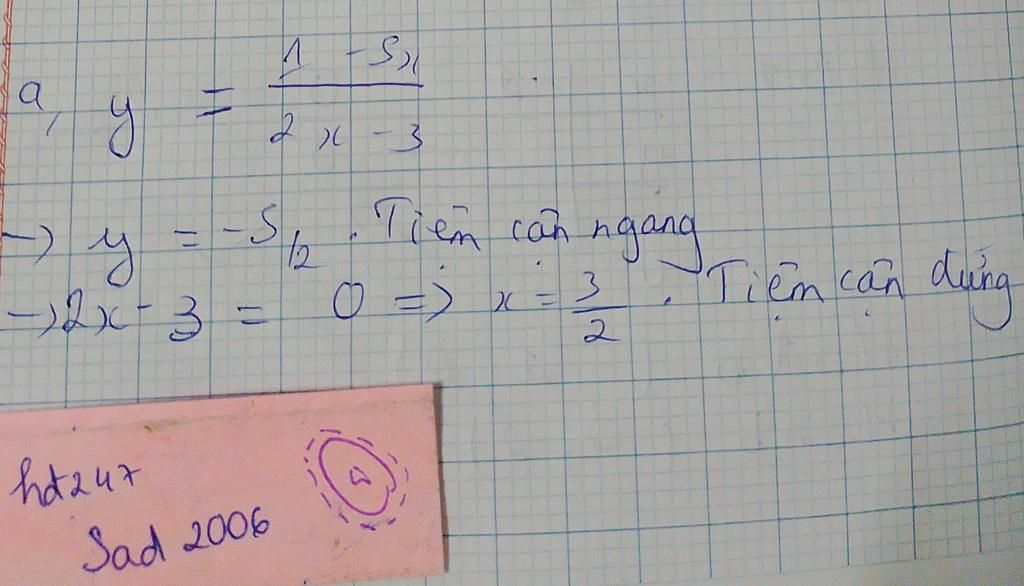 a, y = \frac{1 - 5x}{2x - 3}
→ y = -5/2 . Tiệm cận ngang
→ 2x - 3 = 0 => x = \frac{3}{2} . Tiệm cận đứng
hdt247
Sad 2006